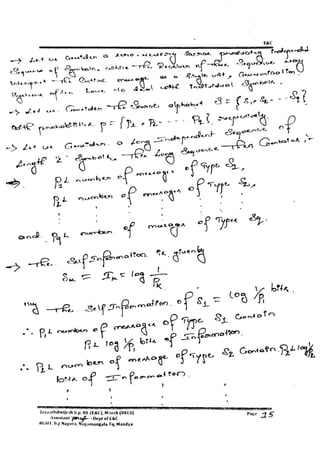 E&C
→ Let us Consider a zero-memory Source producing independent
Sequence of Symbols, while the Receiver of these Sequence may
interpret the Entire message as a Single unit, Communication
Systems often have to deal with individual Symbols.
→ Let us Consider the Source alphabet S = {S1, S2 - - - Sq}
with probabilities p = {P1, P2 - - - - Pq} respectively.
→ Let us Consider a Long Independent Sequence of
Length 'L' Symbols, The Long Sequence Then Contains,
P1L number of messages of Type S1,
P2L number of messages of Type S2,
and PqL number of messages of Type Sq.
→ The Self Information is given by
SK = IK = log 1/PK
lly The Self Information of S1 = log 1/P1 bits.
∴ P1L number of messages of Type S1 Contain
P1L log 1/P1 bits of Information.
∴ P2L number of message of Type S2 Contain P2L log 1/P2
bits of Information.
Assistant Dept of E&C
BGSIT, b.g Nagara, Nagamangala Tq, Mandya
Page 15